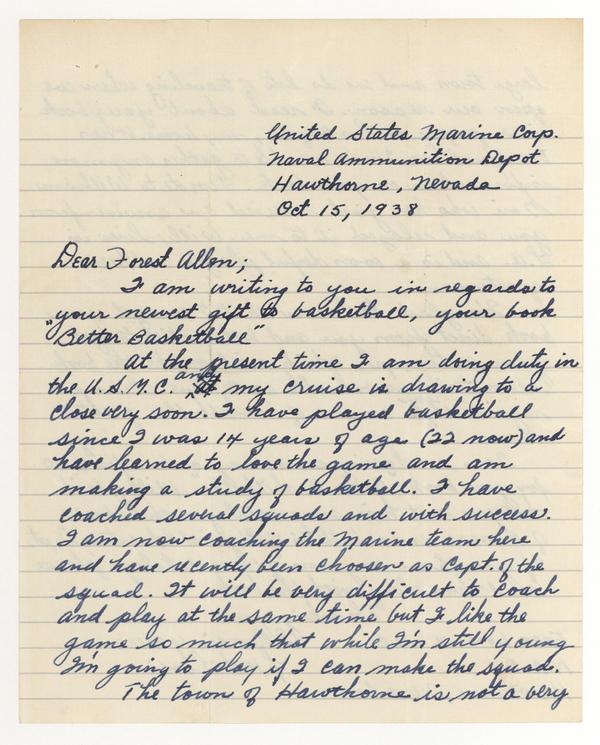 United States Marine Corp.
Naval Ammunition Depot
Hawthorne, Nevada
Oct 15, 1938
Dear Forest Allen;
I am writing to you in regards to
your newest gift to basketball, your book
"Better Basketball"
At the present time I am doing duty in
the U.S.M.C. and my cruise is drawing to a
close very soon. I have played basketball
since I was 14 years of age (22 now) and
have learned to love the game and am
making a study of basketball. I have
coached several squads and with success.
I am now coaching the Marine team here
and have recently been choosen as Capt. of the
squad. It will be very difficult to coach
and play at the same time but I like the
game so much that while I'm still young
I'm going to play if I can make the squad.
The town of Hawthorne is not a very